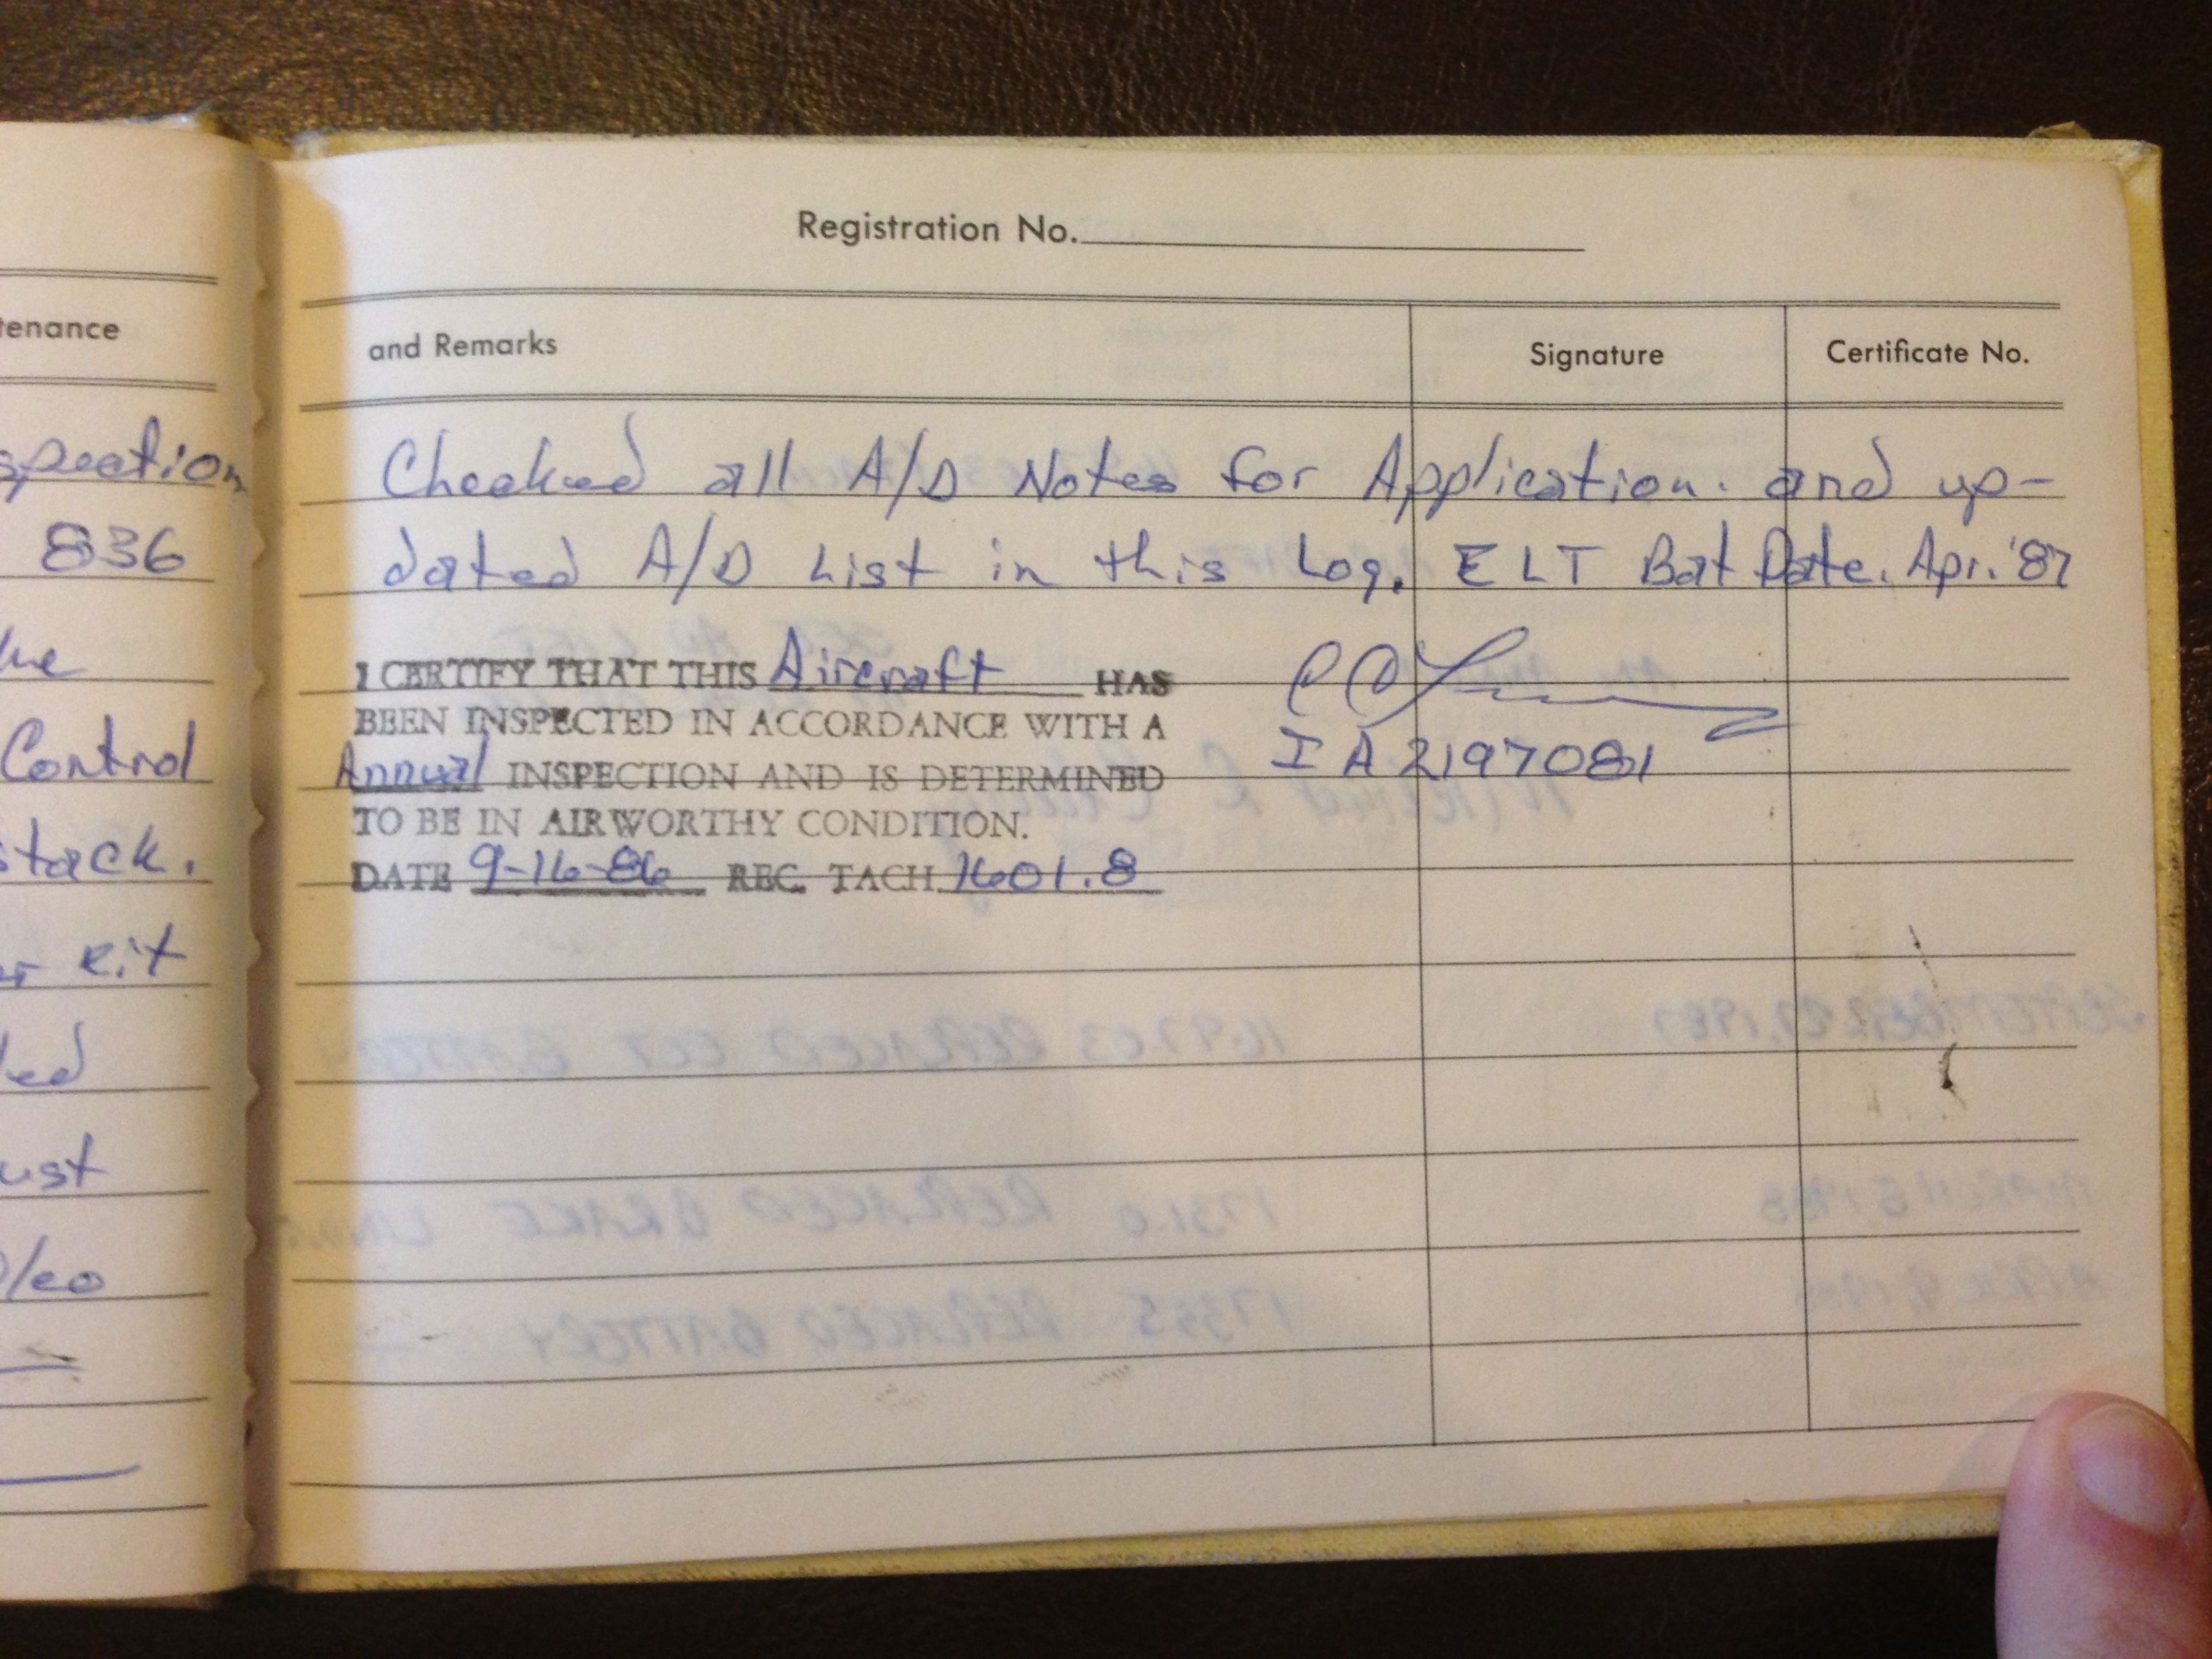 tenance
spection
836
Control
stack.
kit
ust
Registration No.
and Remarks
Signature
Certificate No.
Checked all A/D Notes for Application. and up-
dated A/D List in this Log. ELT Bat Date. Apr. '87
I CERTIFY THAT THIS Aircraft HAS
BEEN INSPECTED IN ACCORDANCE WITH A
Annual INSPECTION AND IS DETERMINED
TO BE IN AIRWORTHY CONDITION.
DATE 9-16-86 REC. TACH. 1601.8
IA 2197081